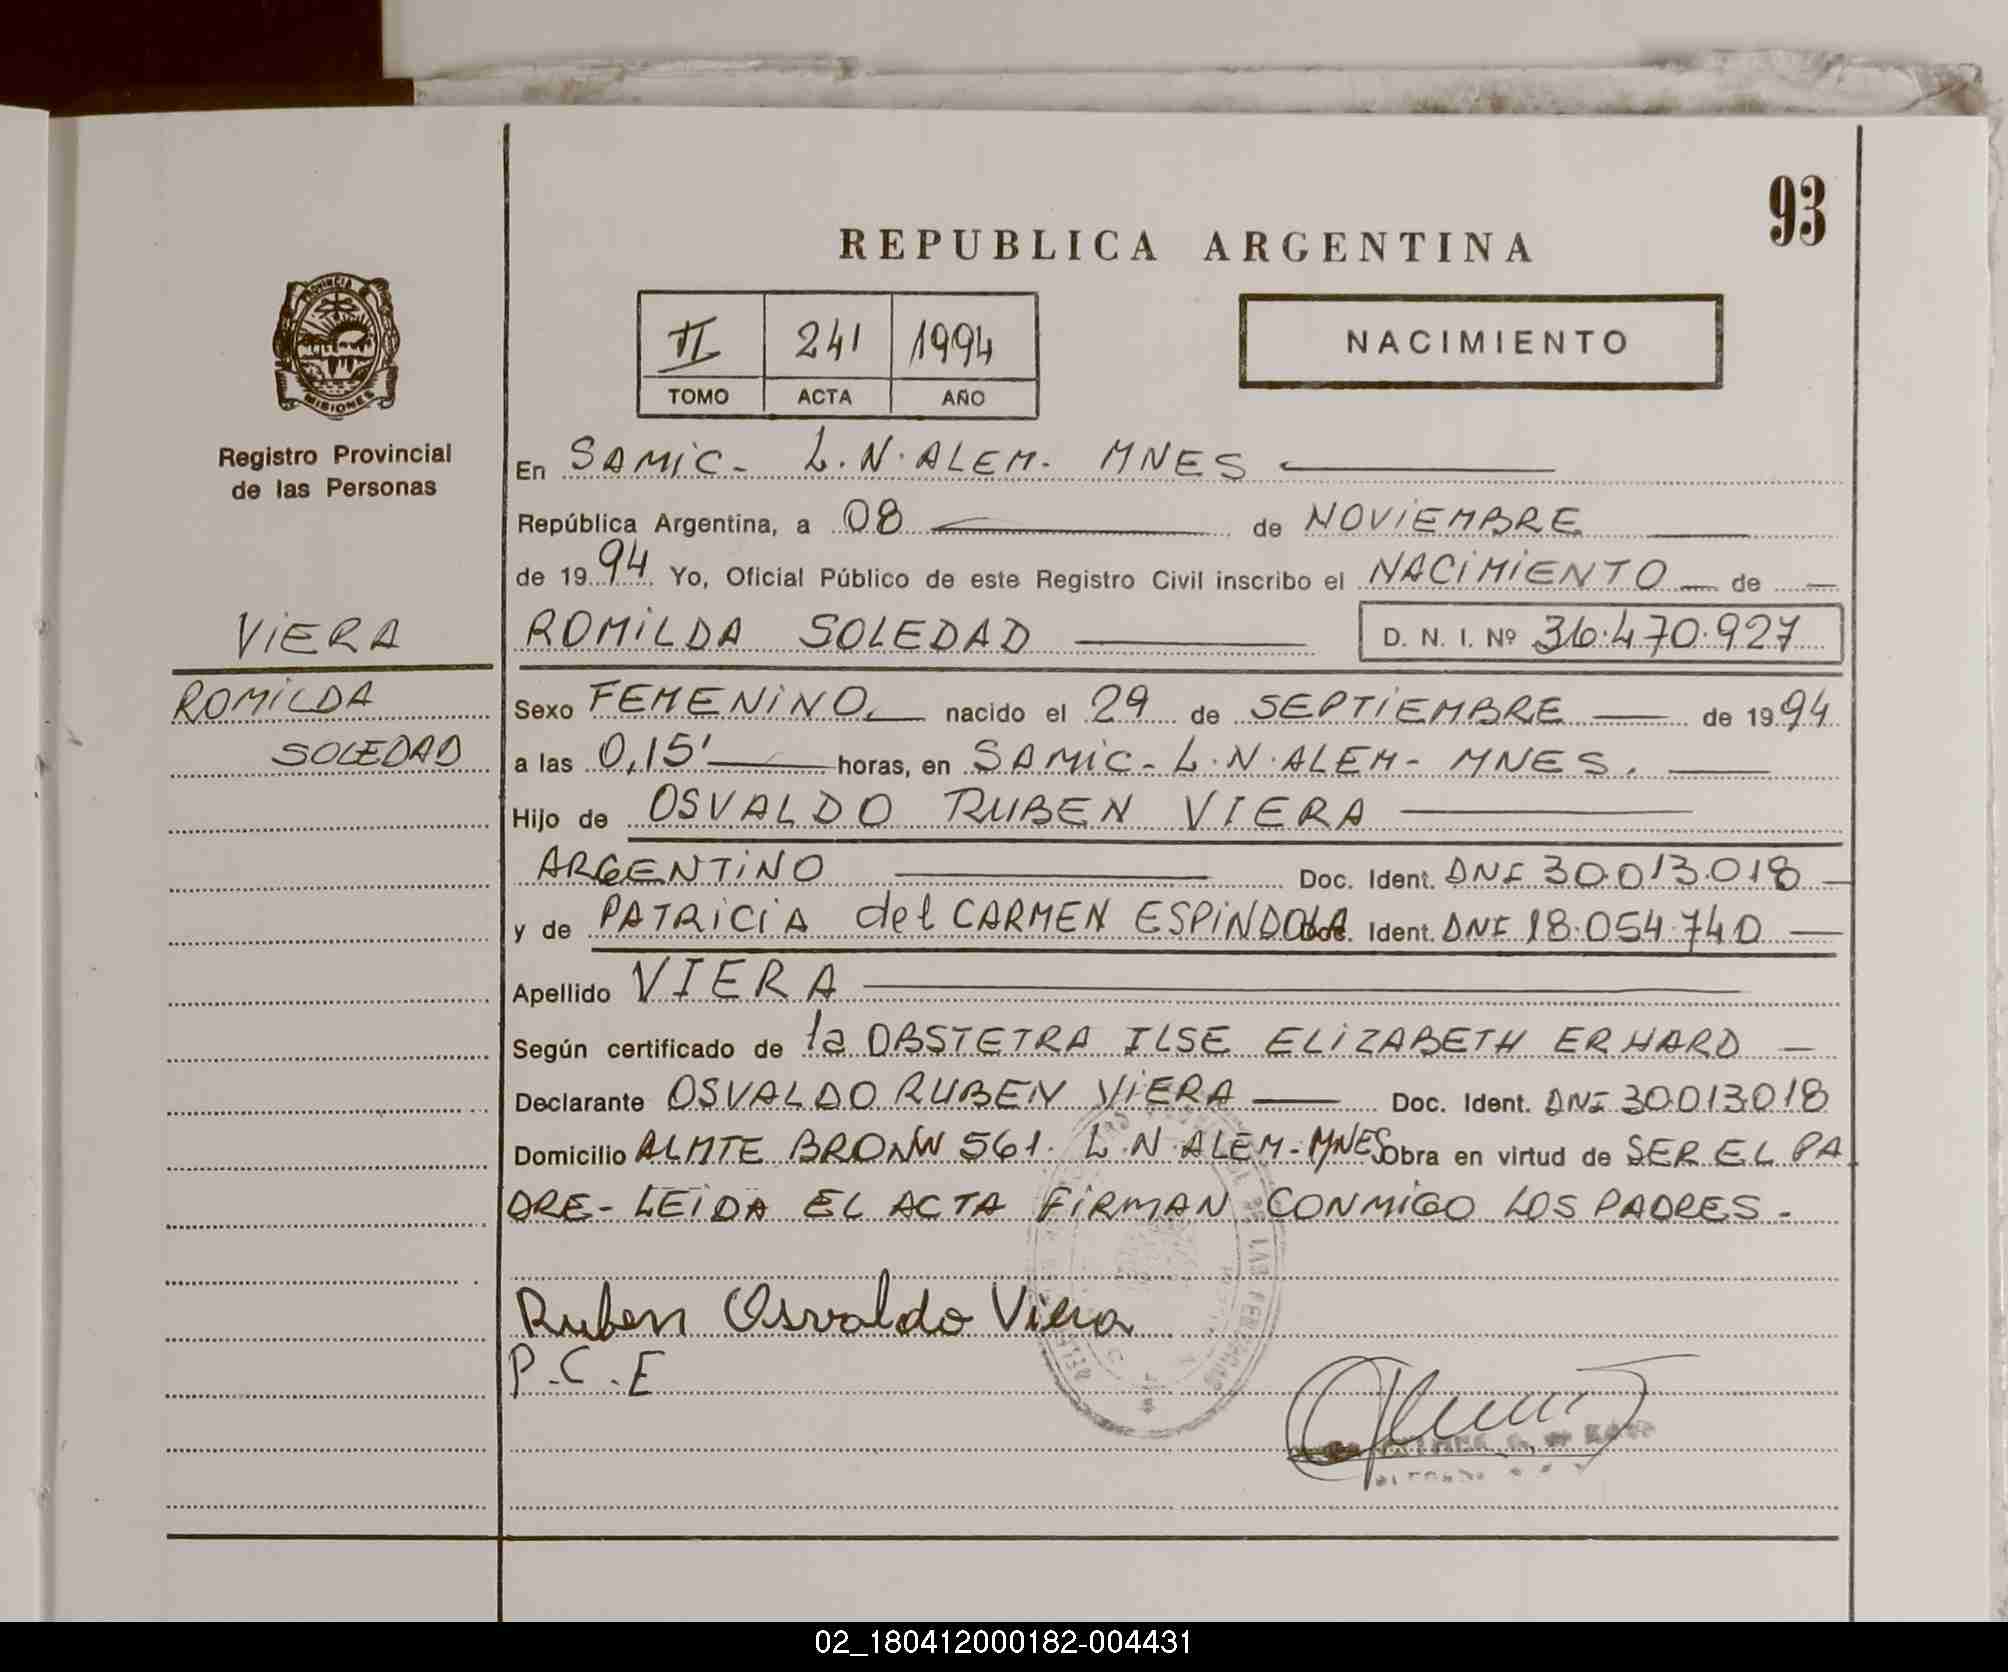 93
REPUBLICA ARGENTINA
PROVINCIA DE
MISIONES
Registro Provincial
de las Personas
II 241 1994
TOMO ACTA AÑO
NACIMIENTO
En SAMIC- L.N.ALEM- MNES
República Argentina, a 08 de NOVIEMBRE
de 1994 Yo, Oficial Público de este Registro Civil inscribo el NACIMIENTO de
VIERA
ROMILDA SOLEDAD D. N. I. Nº 36.470.927
ROMILDA
SOLEDAD
Sexo FEMENINO nacido el 29 de SEPTIEMBRE de 1994
a las 0,15' horas, en SAMIC- L.N.ALEM- MNES.
Hijo de OSVALDO RUBEN VIERA
ARGENTINO Doc. Ident. DNI 30.013.018
y de PATRICIA del CARMEN ESPINDOLA Doc. Ident. DNI 18.054.740
Apellido VIERA
Según certificado de la OBSTETRA ILSE ELIZABETH ERHARD
Declarante OSVALDO RUBEN VIERA Doc. Ident. DNI 30.013.018
Domicilio ALMTE BRONW 561. L.N.ALEM-MNES Obra en virtud de SER EL PA
DRE- LEIDA EL ACTA FIRMAN CONMIGO LOS PADRES.
Ruben Osvaldo Viera
P.C.E
02_180412000182-004431